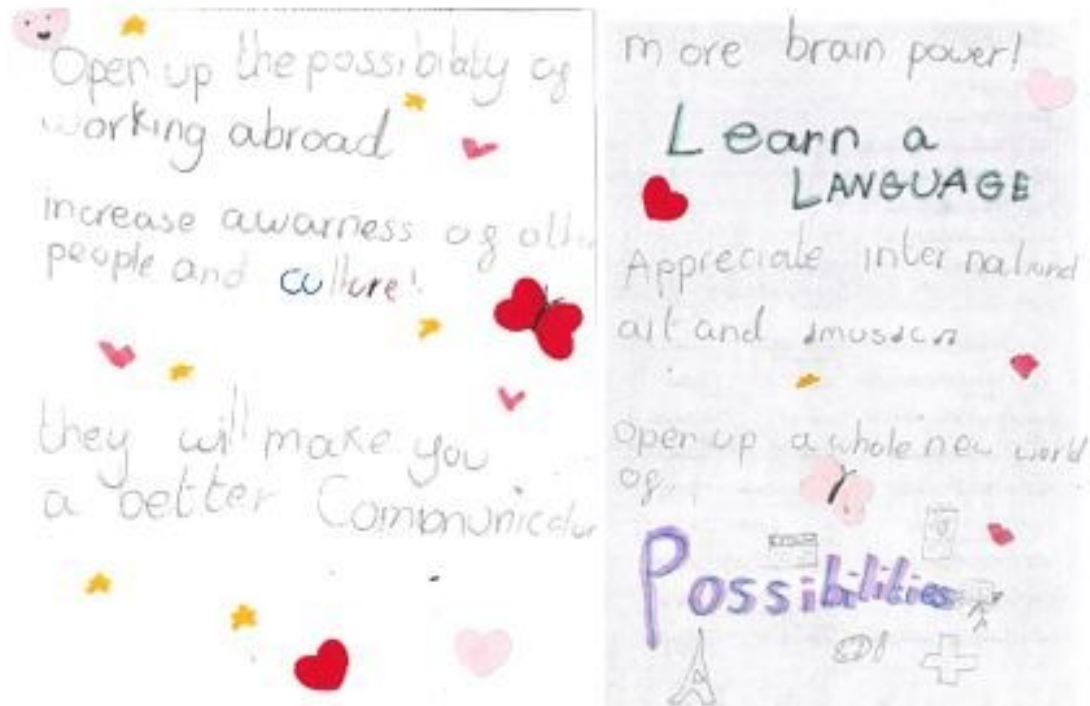 Open up the possibility of
working abroad
increase awarness of other
people and culture!
they will make you
a better Communicator
more brain power!
Learn a
LANGUAGE
Appreciate international
art and music
open up a whole new world
of...
Possibilities